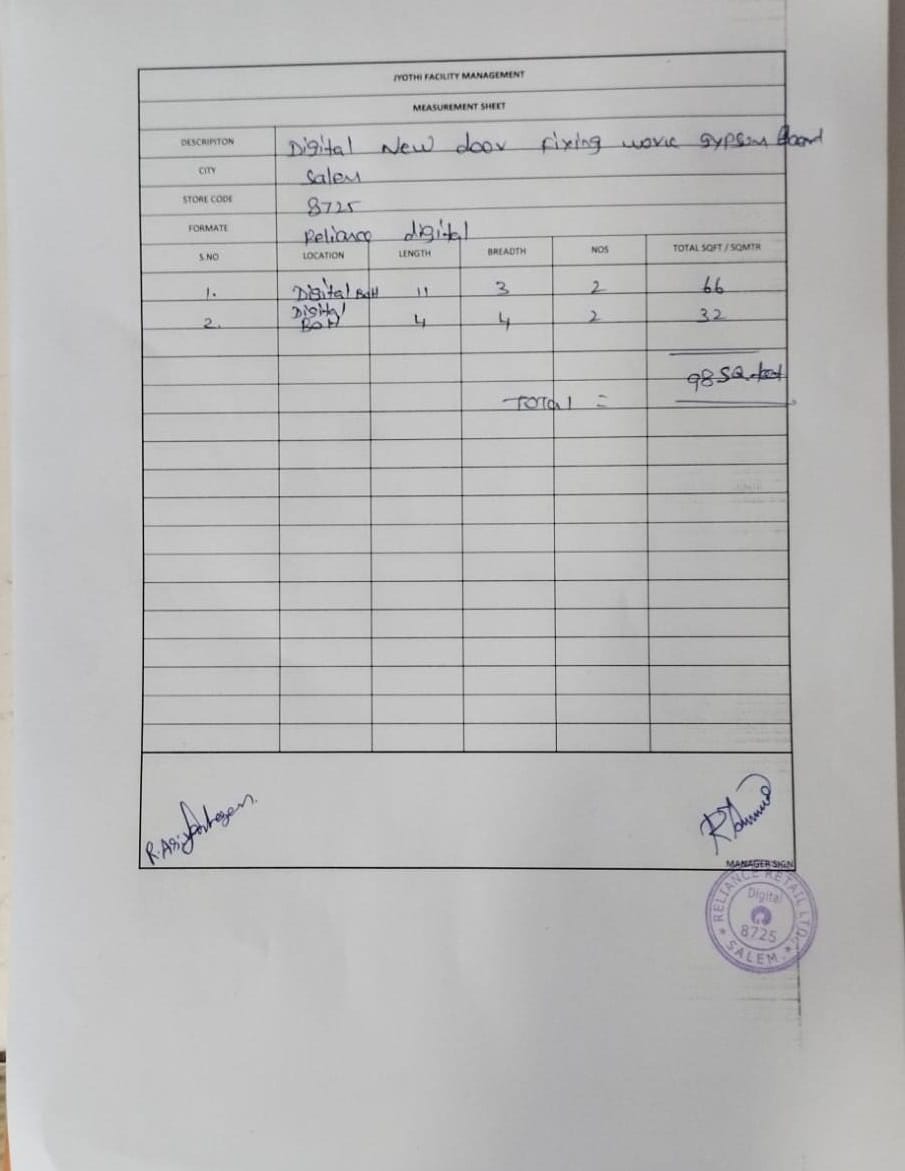 JYOTHI FACILITY MANAGEMENT
MEASUREMENT SHEET
DESCRIPITON Digital New door fixing work gypsum Board
CITY Salem
STORE CODE 8725
FORMATE Reliance digital
S.NO LOCATION LENGTH BREADTH NOS TOTAL SQFT / SQMTR
1. Digital BOH 11 3 2 66
2. Digital BOH 4 4 2 32
98 SQ.feet
TOTAl =
MANAGER SIGN
RELIANCE RETAIL LTD.
Digital
8725
SALEM.